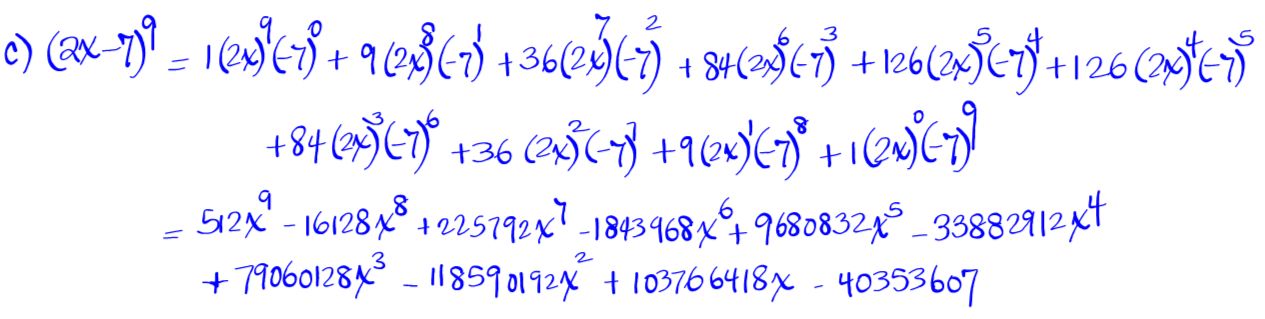 c) (2x-7)⁹ = 1(2x)⁹(-7)⁰ + 9(2x)⁸(-7)¹ + 36(2x)⁷(-7)² + 84(2x)⁶(-7)³ + 126(2x)⁵(-7)⁴ + 126(2x)⁴(-7)⁵
+ 84(2x)³(-7)⁶ + 36(2x)²(-7)⁷ + 9(2x)¹(-7)⁸ + 1(2x)⁰(-7)⁹
= 512x⁹ - 16128x⁸ + 225792x⁷ - 1843968x⁶ + 9680832x⁵ - 33882912x⁴
+ 79060128x³ - 118590192x² + 103766418x - 40353607